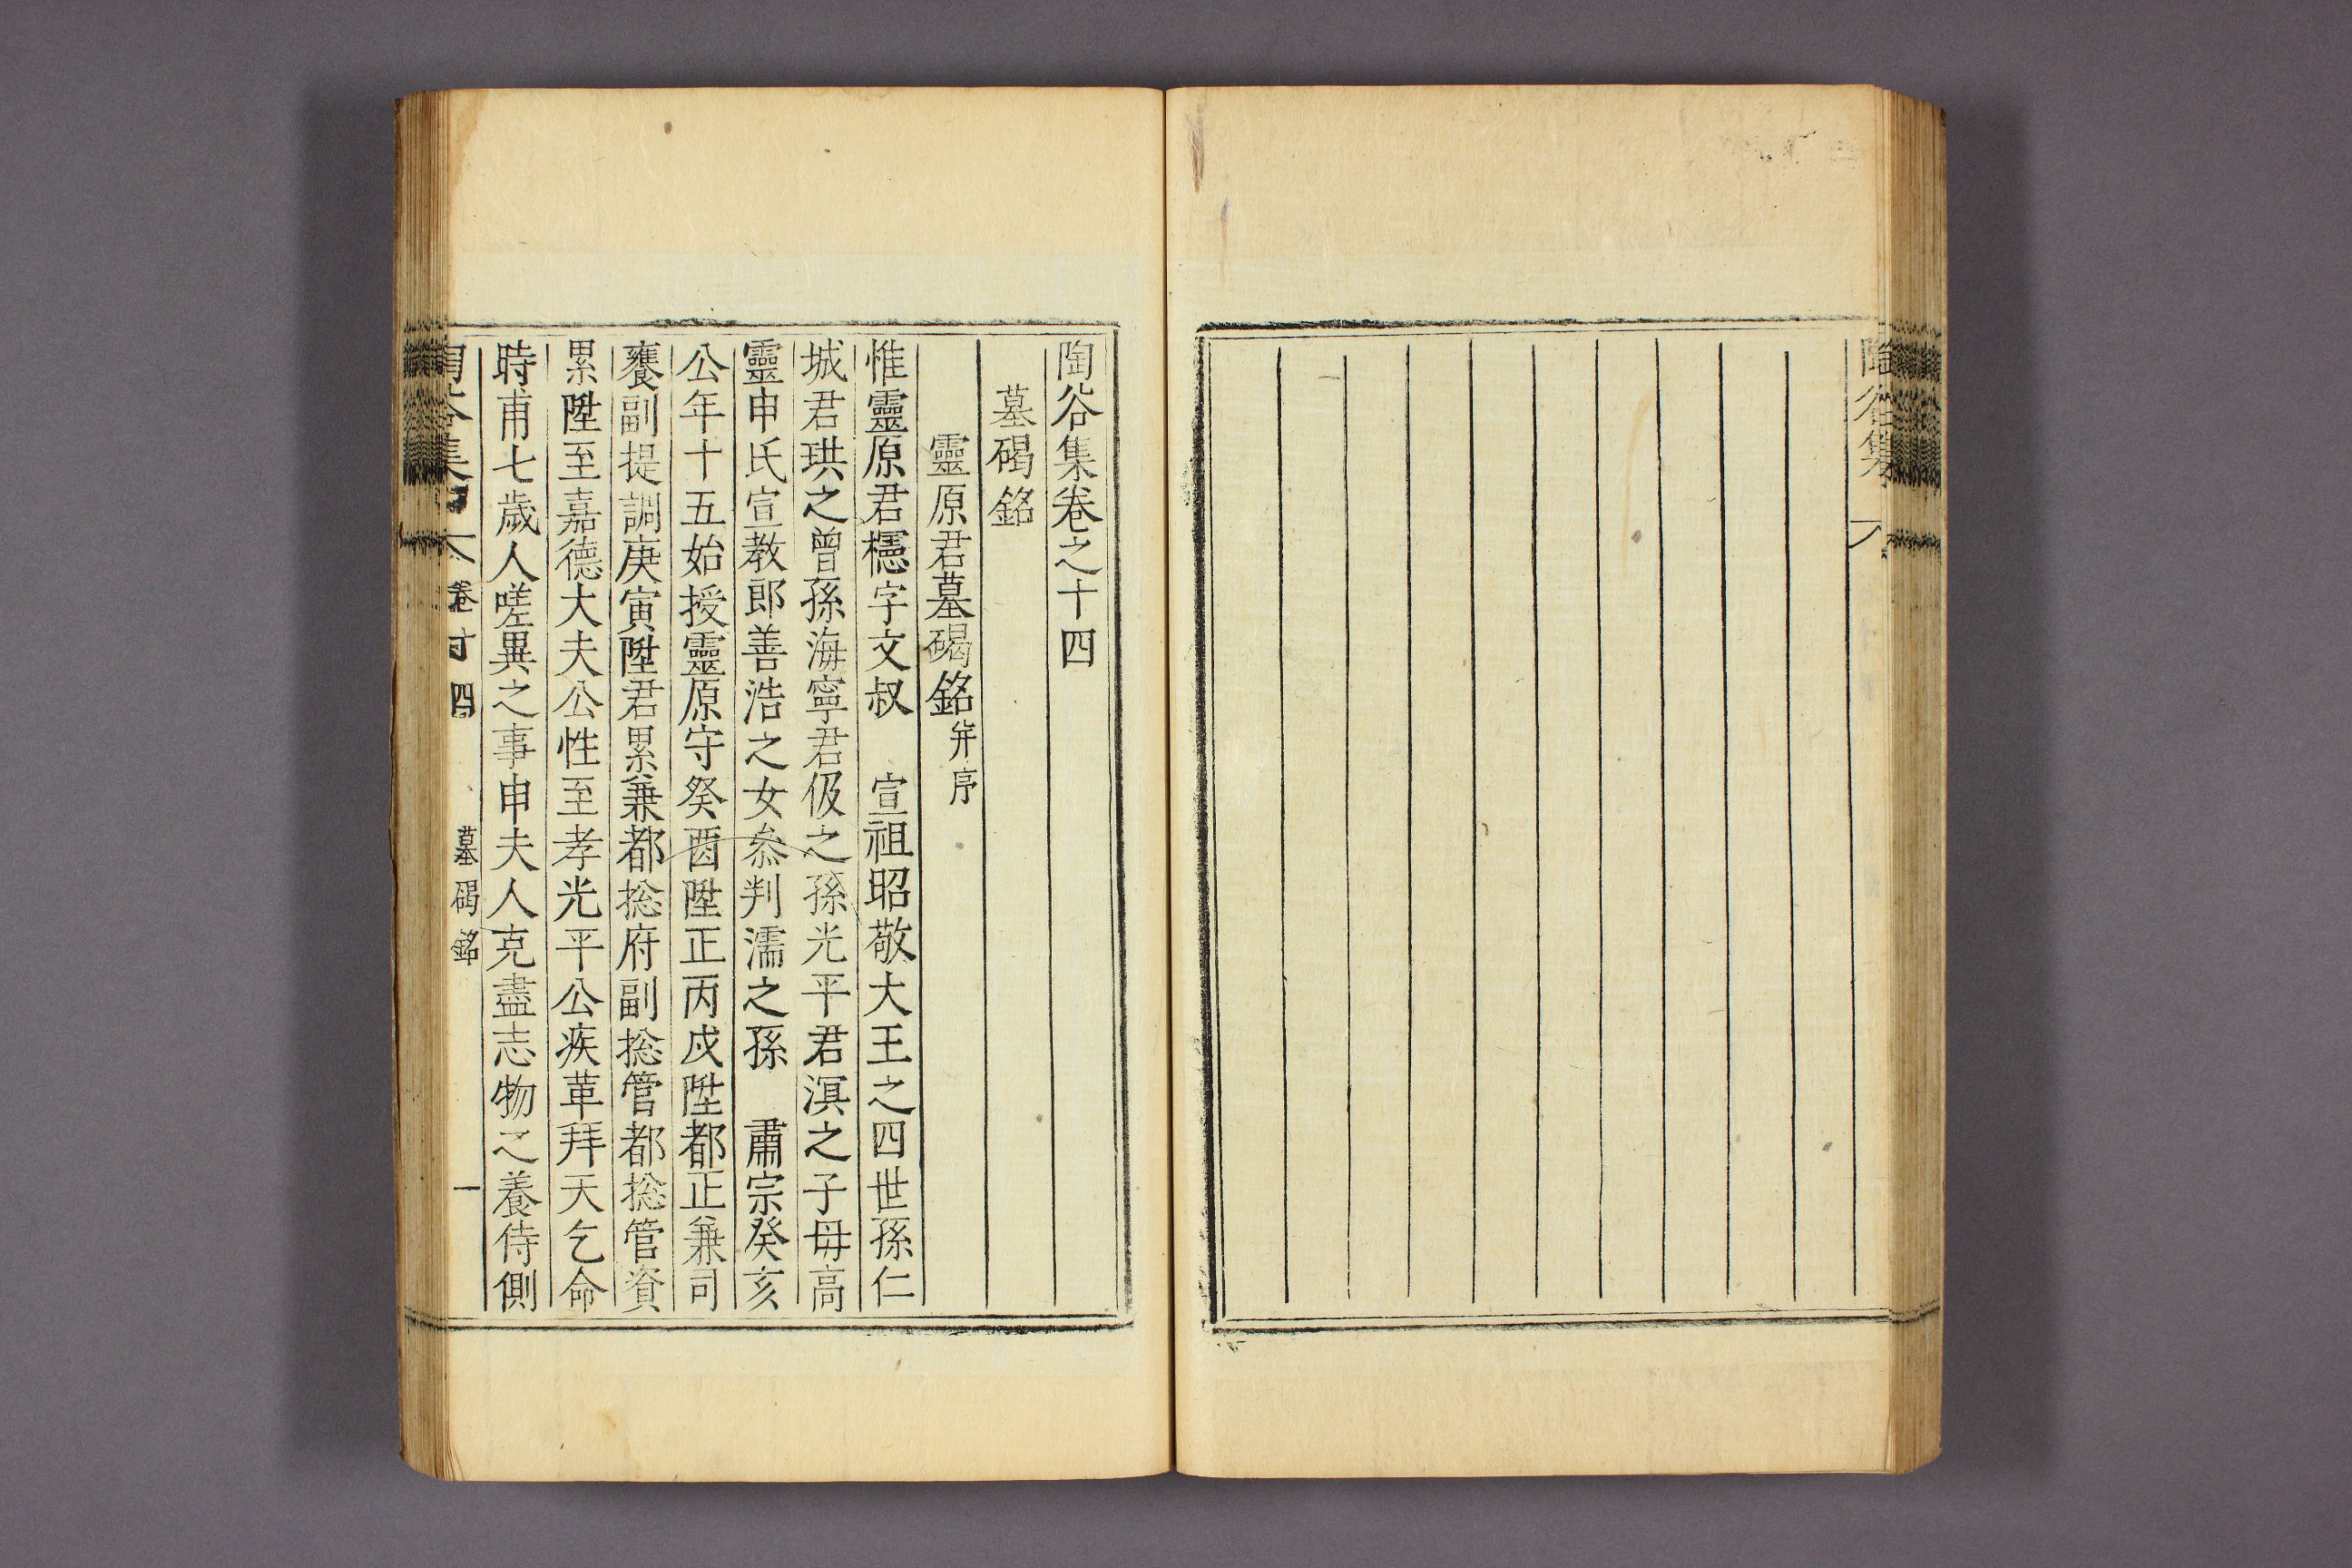 陶谷集
陶谷集卷之十四
墓碣銘
靈原君墓碣銘 幷序
惟靈原君櫶字文叔 宣祖昭敬大王之四世孫仁
城君珙之曾孫海寧君伋之孫光平君溟之子毋高
靈申氏宣教郎善浩之女叅判濡之孫 肅宗癸亥
公年十五始授靈原守癸酉陞正丙戌陞都正兼司
饔副提調庚寅陞君累兼都捴府副捴管都捴管資
累陞至嘉德大夫公性至孝光平公疾革拜天乞命
時甫七歲人嗟異之事申夫人克盡志物之養侍側
陶谷集 卷十四 墓碣銘 一